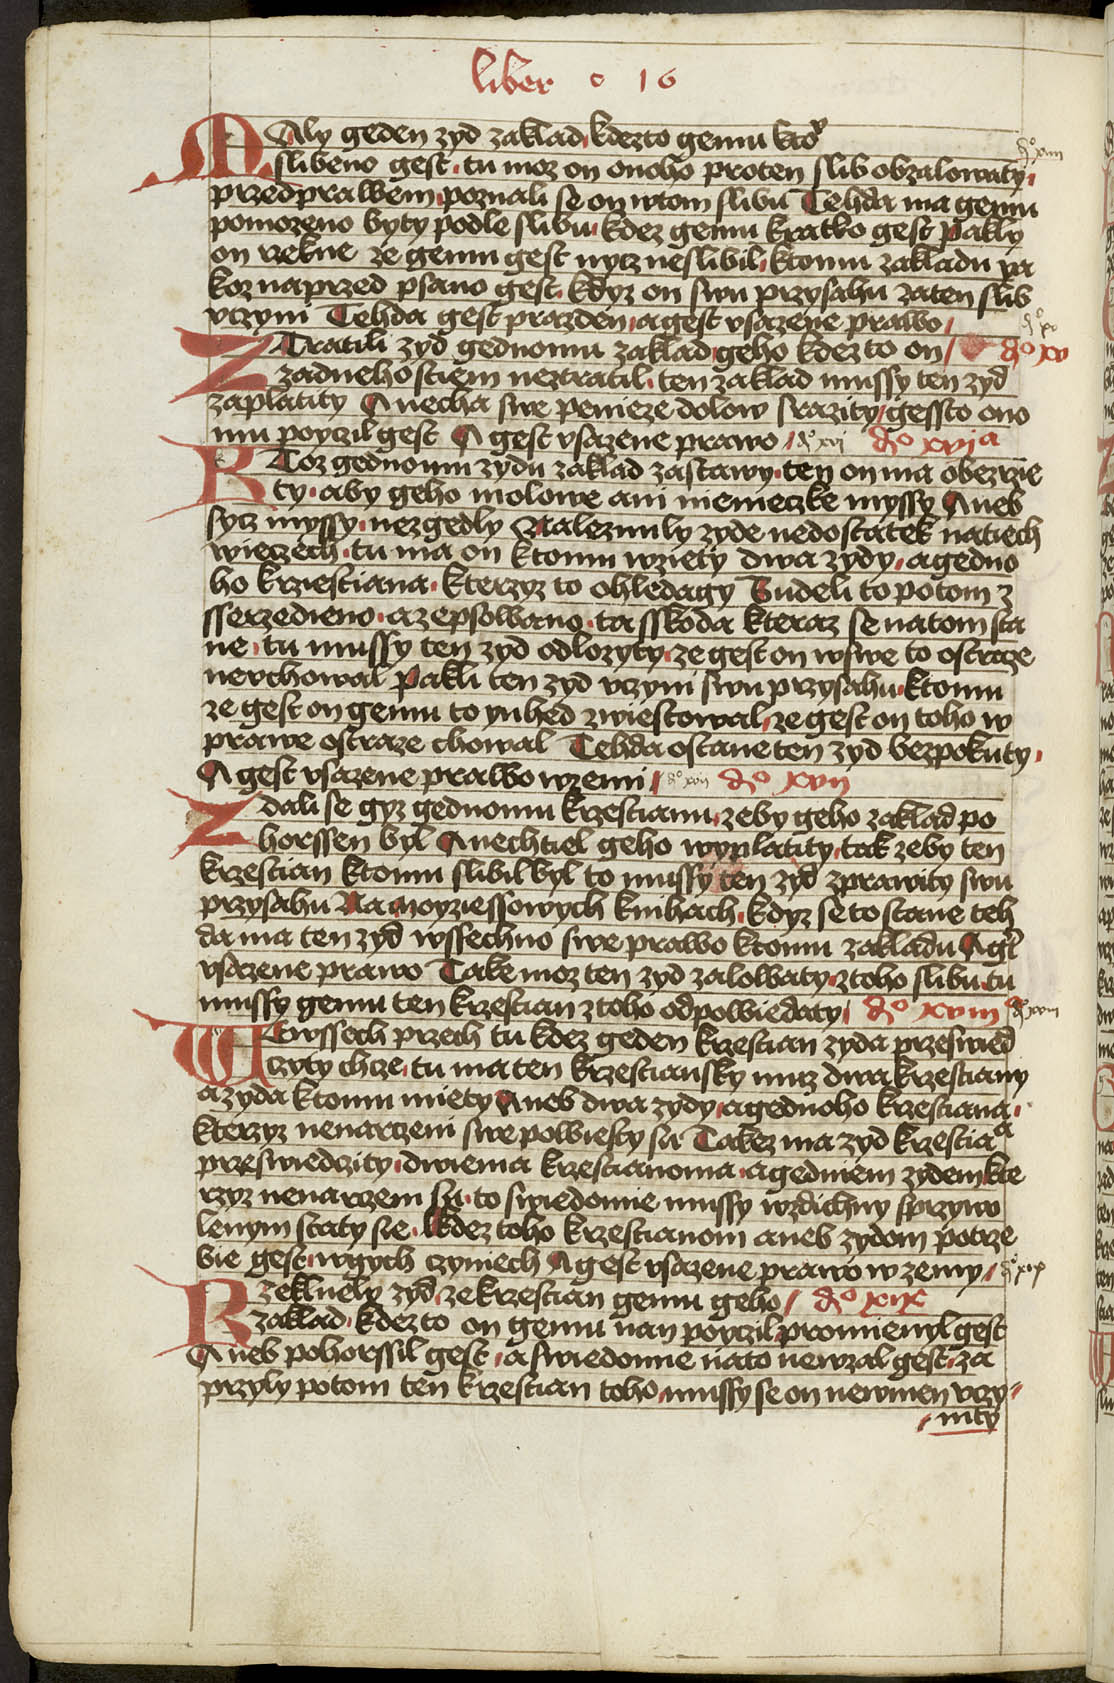 liber c 16
MAly geden zyd zaklad kdezto gemu kto
slibeno gest tu moz on onoho proten slib obzalowaty
przed prawem poznali se on wtom slibu Tehda ma gemu
pomozeno byty podle slibu kdez gemu kratko gest Pakly
on rzekne ze gemu gest nycz neslibil ktomu zakladu ya
koz naprzed psano gest kdyz on swu przysahu zaten slib
vczyni Tehda gest prazden a gest vsazene prawo
ZTratili zyd gednomu zaklad geho kdezto on do xv
zadneho sciem neztratil ten zaklad mussy ten zyd
zaplatity A necha swe penieze dolow srazity gessto ono
mu poyczil gest A gest vsazene prawo do xvi do xvja
KToz gednomu zydu zaklad zastawy ten on ma obezrzie
ty aby geho molowe ani niemeczke myssy Aneb
sycz myssy nezgedly Nalezniuly zyde nedostatek natiech
wieczech tu ma on ktomu wziety dwa zydy a gedno
ho krzestiana kterzyz to ohledagy Budeli to potom z
sserzedieno a zepsowano ta sskoda kteraz se natom sta
ne tu mussy ten zyd odlozyty ze gest on wswe to ostraze
nevchowal Pakli ten zyd vczyni swu przysahu ktomu
ze gest on gemu to ynhed zwiestowal ze gest on toho w
prawe ostraze chowal Tehda ostane ten zyd bezpokuty
A gest vsazene prawo wzemi do xvii do xvii
Zdali se gyz gednomu krzestianu zeby geho zaklad po
horssen byl A nechtiel geho wyplatity tak zeby ten
krzestian ktomu slibil byl to mussy ten zyd zprawity swu
przysahu Na moyziessowych knihach kdyz se to stane teh
da ma ten zyd wssechno swe prawo ktomu zakladu A gt
vsazene prawo Take moz ten zyd zalowaty ztoho slibu tu
mussy gemu ten krzestian ztoho odpowiedaty do xviii do xviii
Wewssech przech tu kdez geden krzestian zyda przeswied
czyty chcze tu ma ten krzestiansky muz dwa krzestiany
a zyda ktomu miety Aneb dwa zydy a gednoho krzestiana
kterzyz nenarczeni swe powiesty su Takez ma zyd krzestiaa
przeswiedczity dwiema krzestianoma a gedniem zydem kte
rzyz nenarczeni su to swiedomie mussy wzdichny sprzywo
lenym staty sie kdez toho krzestianom aneb zydom potrze
bie gest wgych czyniech A gest vsazene prawo w zemy do xix
Rzekluely zyd ze krzestian gemu geho do xix
zaklad kdezto on gemu nan poyczil promienyl gest
Aneb pohorssil gest a swiedomie nato newzal gest za
przyly potom ten krzestian toho mussy se on newinen vczy
nity